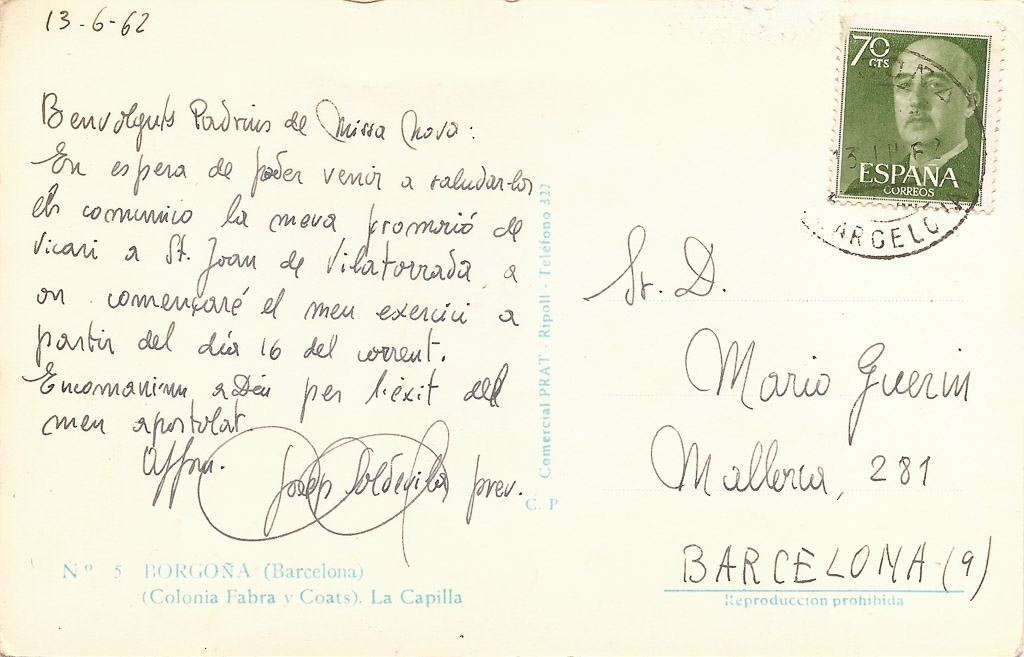 13-6-62
Benvolguts Padrins de Missa Nova:
En espera de poder venir a saludar-los
els comunico la meva promoció de
Vicari a St. Joan de Vilatorrada, a
on començaré el meu exercici a
partir del dia 16 del corrent.
Encomanin-me a Déu per l'éxit del
meu apostolat.
Affm.
Josep Soldevila prev.
Nº 5 BORGOÑA (Barcelona)
(Colonia Fabra y Coats). La Capilla
Comercial PRAT - Ripoll - Teléfono 327
C. P
70 CTS
ESPAÑA
CORREOS
ARCELO
Sr. D.
Mario Guerin
Mallorca, 281
BARCELONA (9)
Reproducción prohibida